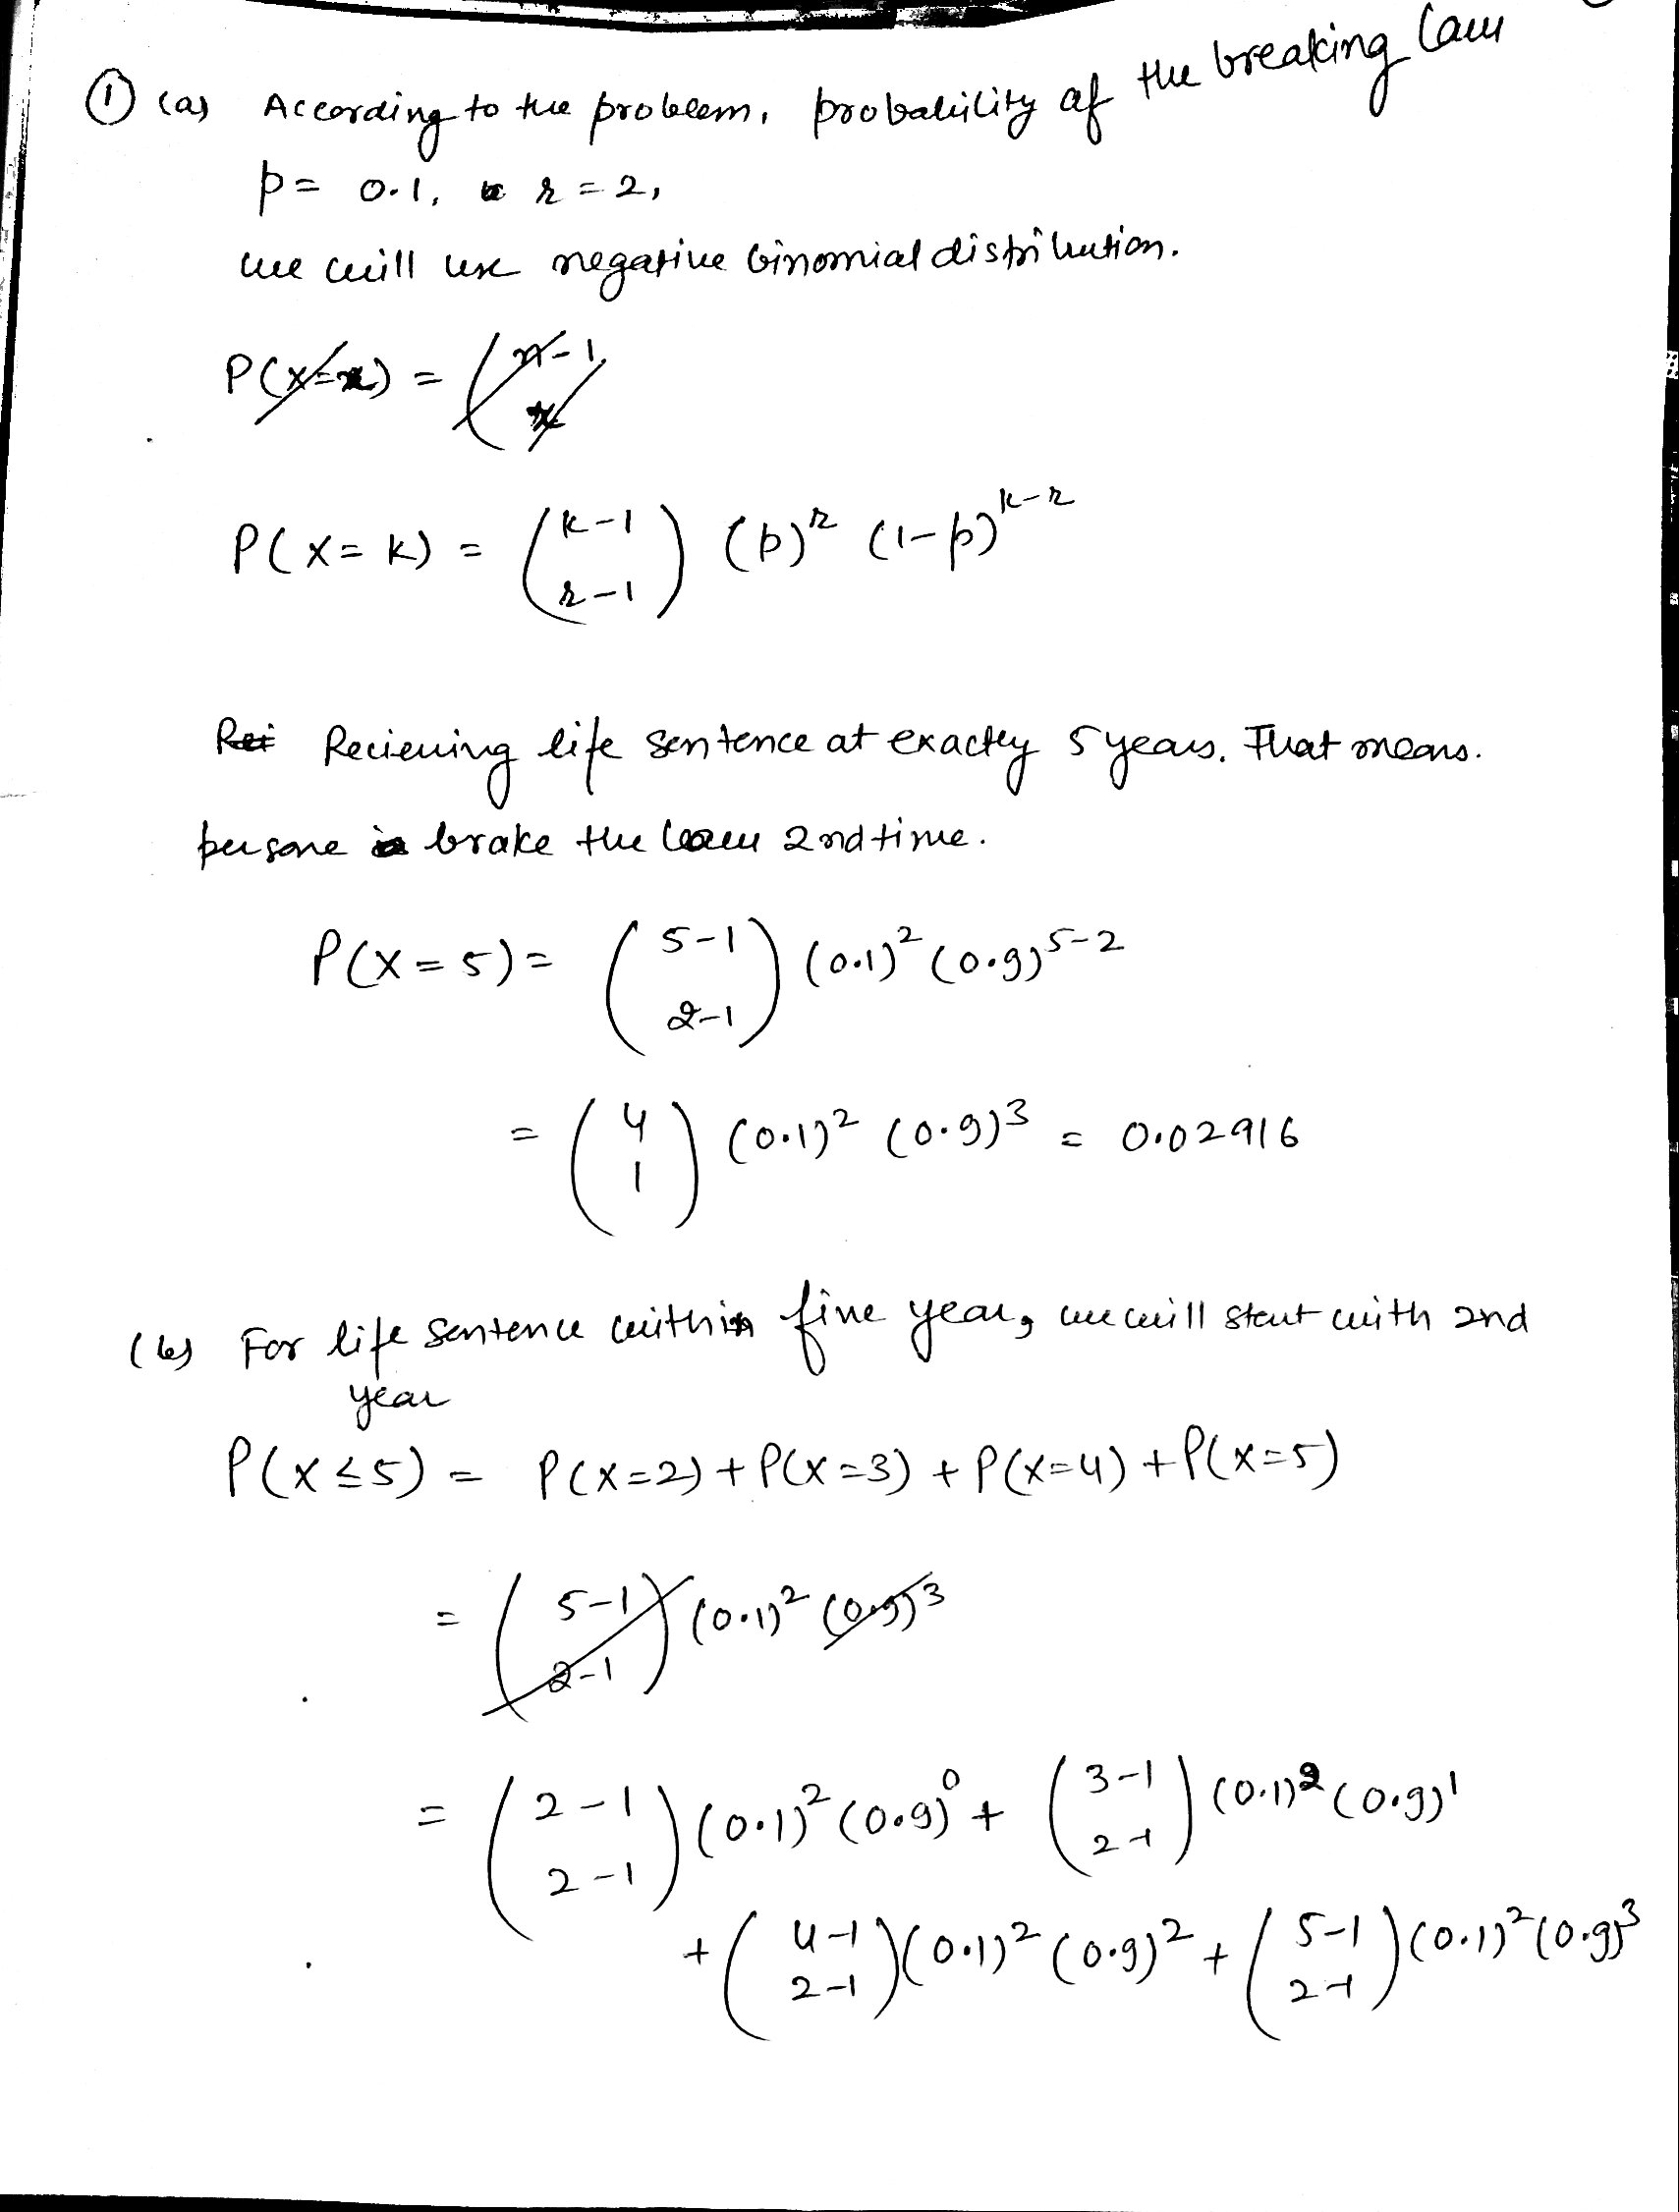 ① (a) According to the problem, probability of the breaking law
p = 0.1, r = 2,
we will use negative binomial distribution.
P(X=x) = (x-1
P(X = k) = (k-1 r-1) (p)^r (1-p)^k-r
Rei Recieving life sentence at exactly 5 years. That means.
persone is brake the law 2nd time.
P(X = 5) = (5-1 2-1) (0.1)^2 (0.9)^5-2
= (4 1) (0.1)^2 (0.9)^3 = 0.02916
(b) For life sentence within five year, we will start with 2nd
year
P(X ≤ 5) = P(X=2) + P(X=3) + P(X=4) + P(X=5)
= (5-1 2-1) (0.1)^2 (0.9)^3
= (2-1 2-1) (0.1)^2 (0.9)^0 + (3-1 2-1) (0.1)^2 (0.9)^1
+ (4-1 2-1) (0.1)^2 (0.9)^2 + (5-1 2-1) (0.1)^2 (0.9)^3